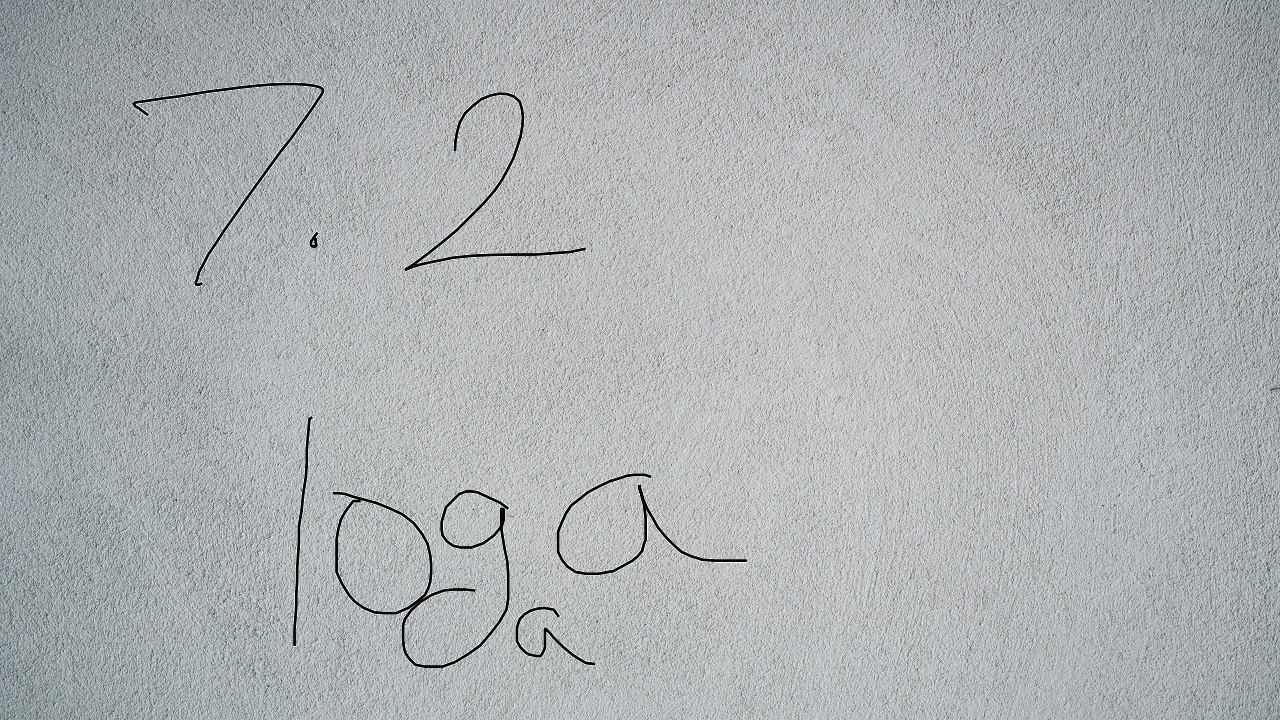 7.2
logₐ a